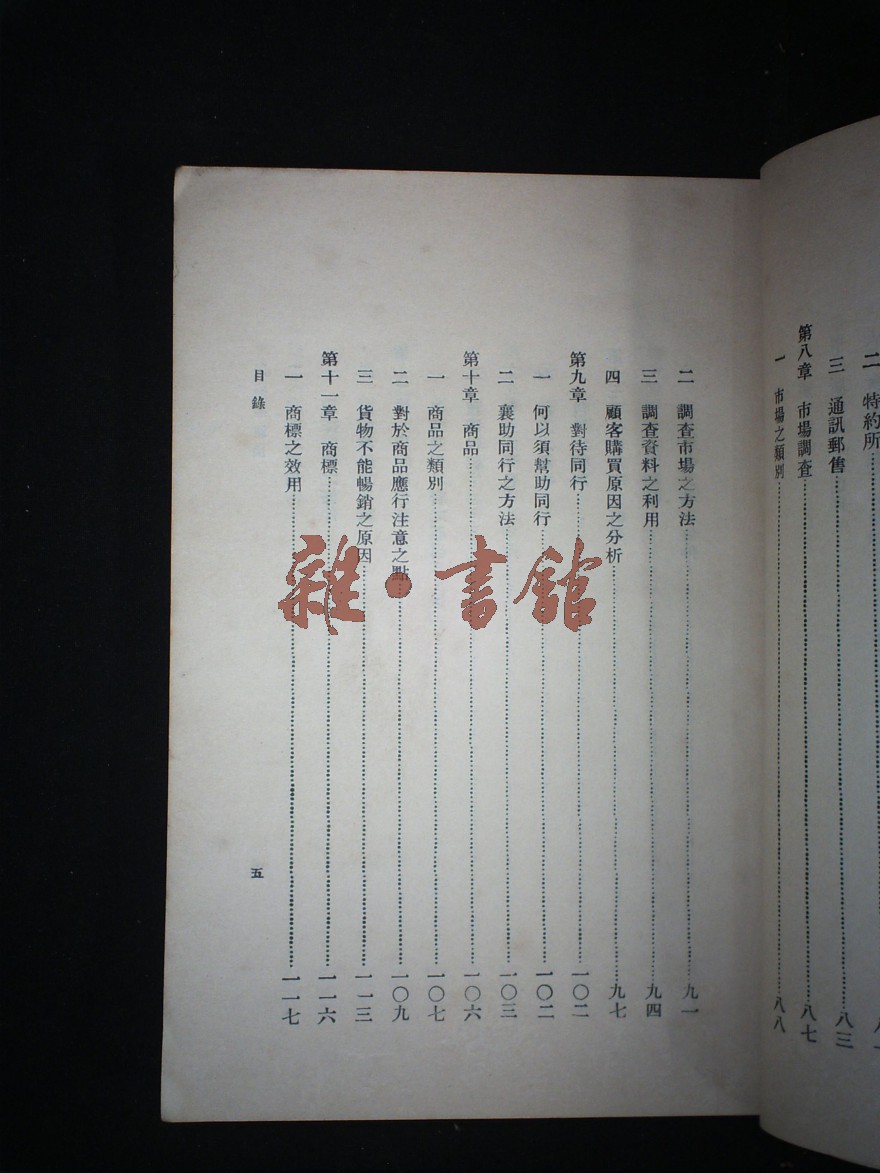 二 特約所
三 通訊郵售……八三
第八章 市場調查……八七
一 市場之類別……八八
二 調查市場之方法……九一
三 調查資料之利用……九四
四 顧客購買原因之分析……九七
第九章 對待同行……一〇二
一 何以須幫助同行……一〇二
二 襄助同行之方法……一〇三
第十章 商品……一〇六
一 商品之類別……一〇七
二 對於商品應行注意之點……一〇九
三 貨物不能暢銷之原因……一一三
第十一章 商標……一一六
一 商標之效用……一一七
目錄
五
雜·書館